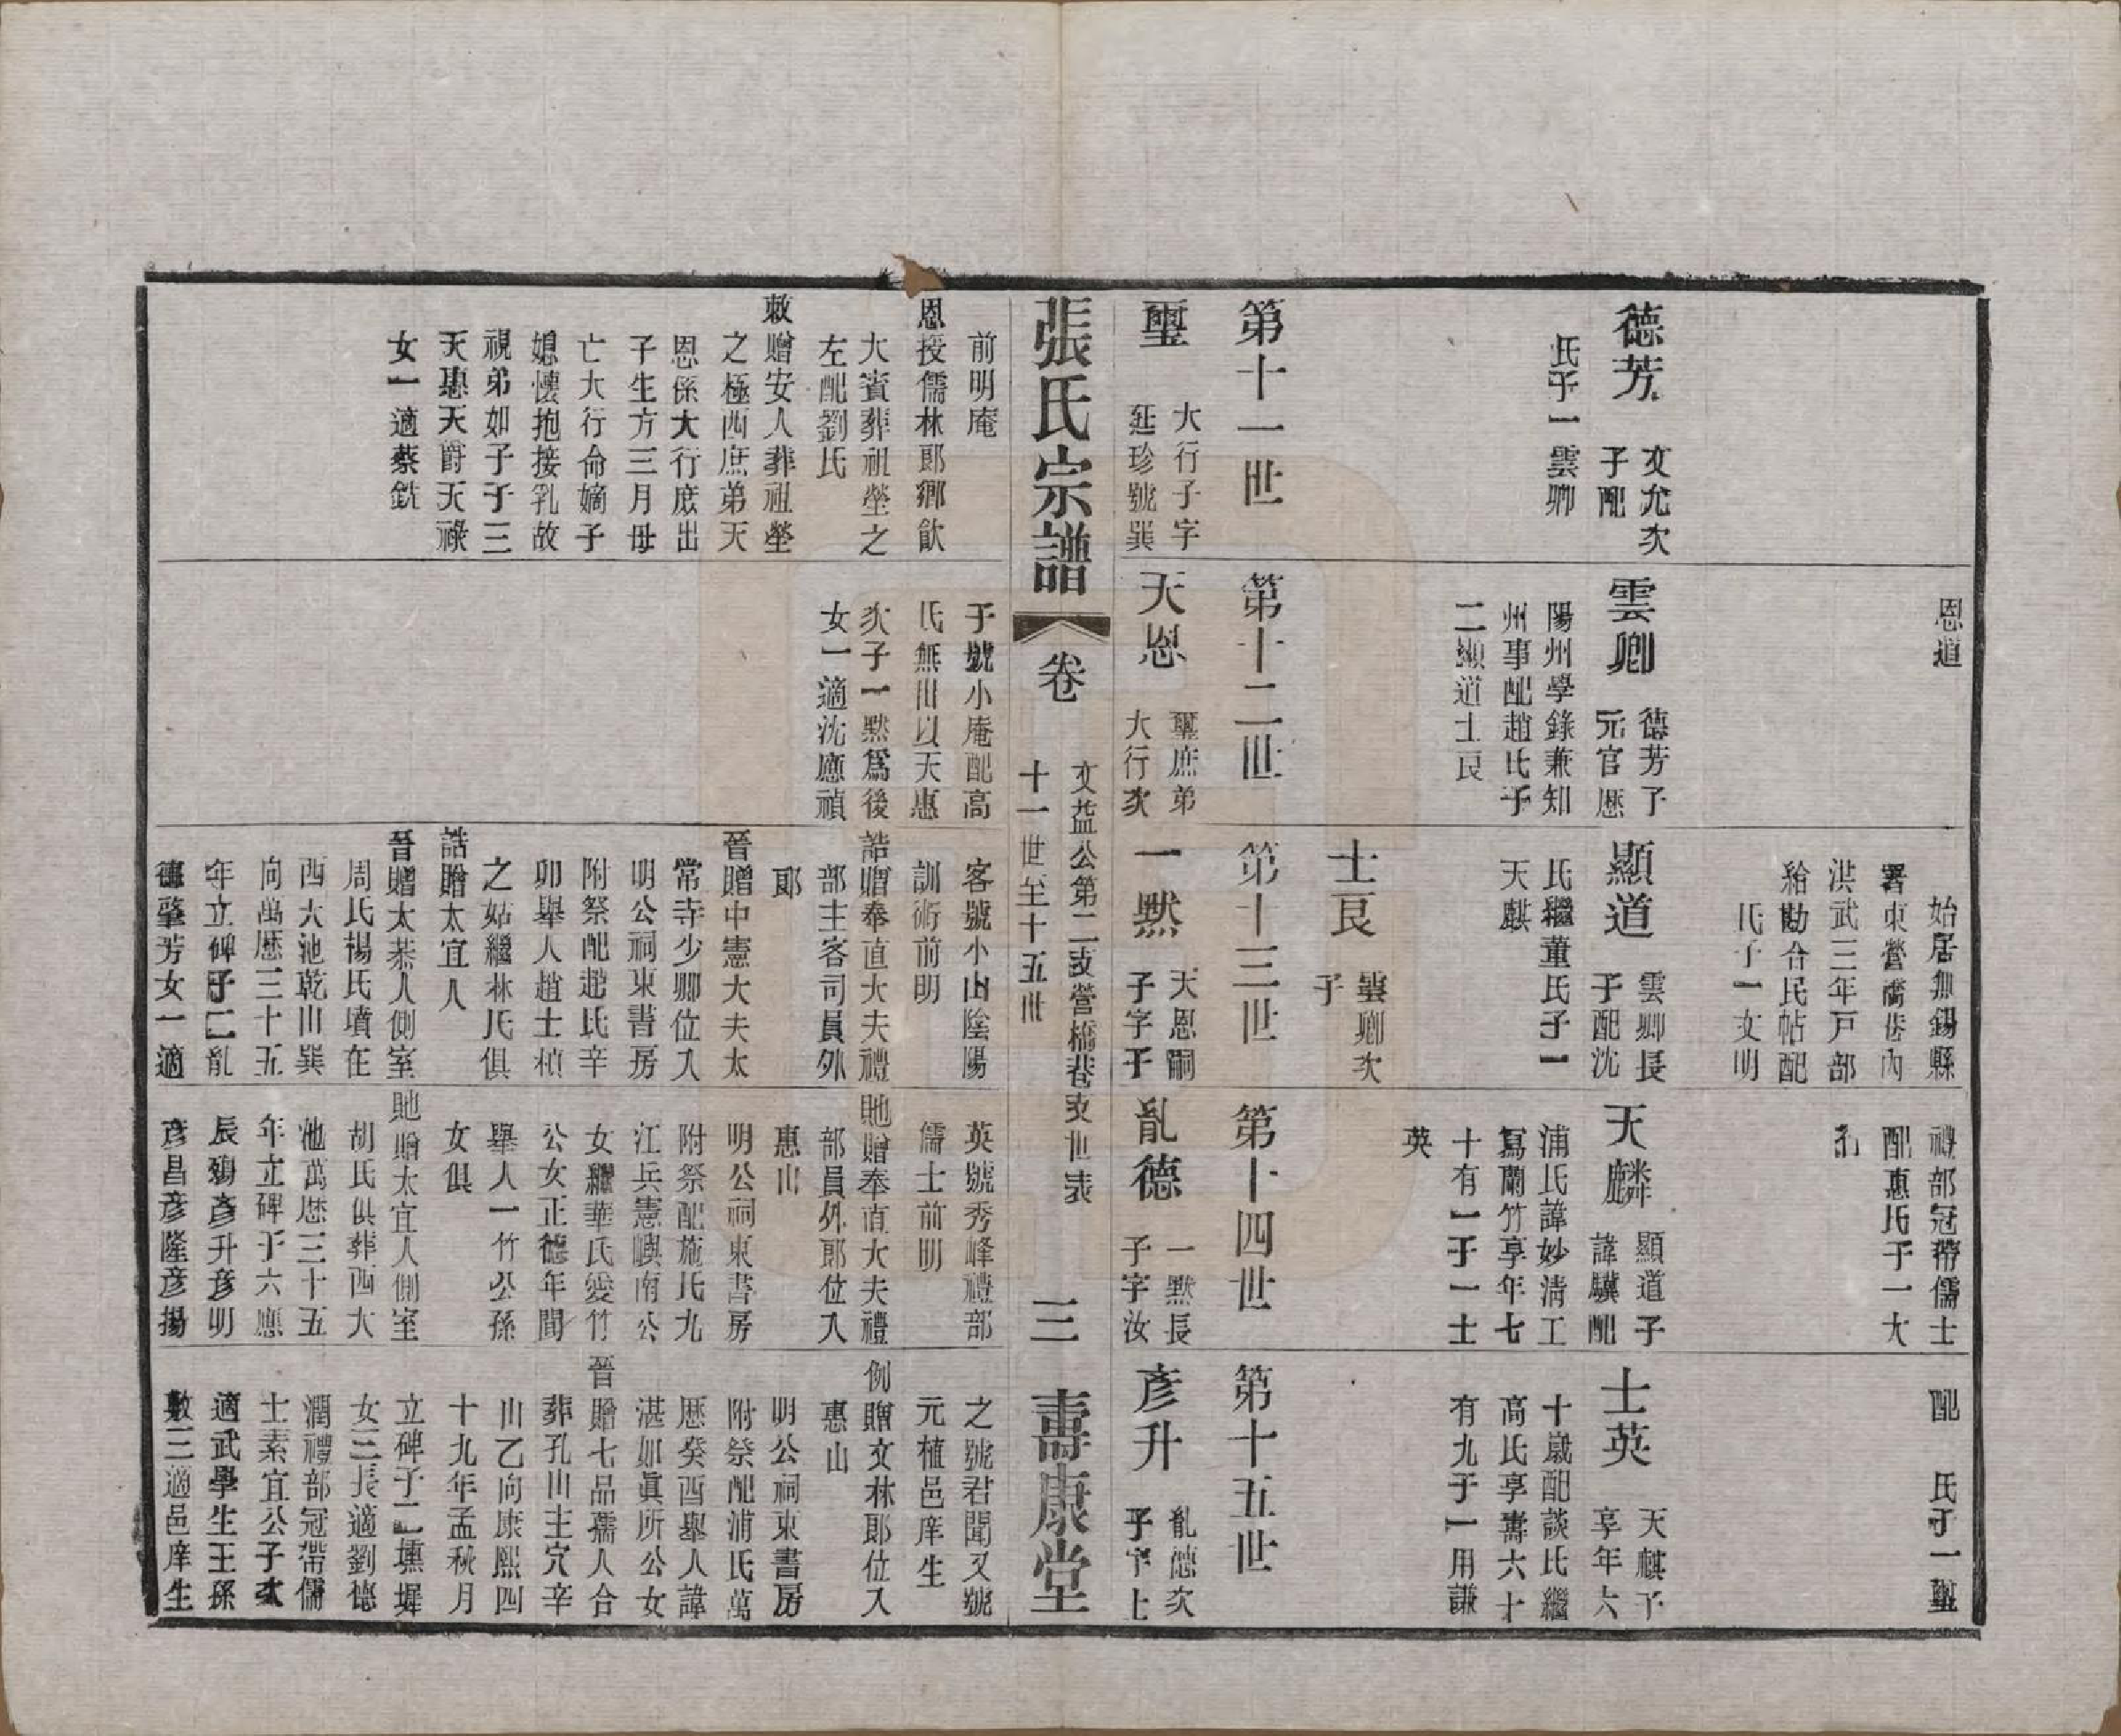 恩道
始居無錫縣
署東營橋巷內
洪武三年戸部
給勘合民帖配
氏子一文明
禮部冠帶儒士
配惠氏子一大
孔
配　氏子一璽
德芳
文允次
子配
氏子一雲卿
雲卿
德芳子
元官歷
陽州學錄兼知
州事配趙氏子
二顯道士良
顯道
雲卿長
子配沈
氏繼董氏子一
天麒
天麟
顯道子
諱驥配
浦氏諱妙清工
寫蘭竹享年七
十有一子一士
英
士英
天麒子
享年六
十歲配談氏繼
高氏享壽六十
有九子一用謙
士良
雲卿次
子
第十一世
第十二世
第十三世
第十四世
第十五世
璽
大行子字
廷珍號巽
天恩
璽庶弟
大行次
一黙
天恩嗣
子字子
亂德
一黙長
子字汝
彥升
亂德次
子字上
張氏宗譜
卷
文益公第二支營橋巷支世表
十一世至十五世
三
壽康堂
前明庵
恩授儒林郎鄉飲
大賓葬祖塋之
左配劉氏
敕贈安人葬祖塋
之極西庶弟天
恩係大行庶出
子生方三月母
亡大行侖嫡子
媳懷抱接乳故
視弟如子子三
天惠天爵天祿
女一適蔡銑
子號小庵配高
氏無出以天惠
次子一黙爲後
女一適沈應禎
客號小山陰陽
訓術前明
誥贈奉直大夫禮
部主客司員外
郎
晉贈中憲大夫太
常寺少卿位入
明公祠東書房
附祭配趙氏辛
卯舉人趙士楨
之姑繼林氏俱
誥贈太宜人
晉贈太恭人側室
周氏楊氏墳在
西大池乾山巽
向萬歷三十五
年立碑子二亂
德肇芳女一適
英號秀峰禮部
儒士前明
貤贈奉直大夫禮
部員外郎位入
惠山
明公祠東書房
附祭配施氏九
江兵憲嶼南公
女繼華氏愛竹
公女正德年間
舉人一竹公孫
女俱
貤贈太宜人側室
胡氏俱葬西大
池萬歷三十五
年立碑子六應
辰弼彥升彥明
彥昌彥隆彥揚
之號君聞又號
元植邑庠生
例贈文林郎位入
惠山
明公祠東書房
附祭配浦氏萬
歷癸酉舉人諱
湛如眞所公女
晉贈七品孺人合
葬孔山主穴辛
山乙向康熙四
十九年孟秋月
立碑子二壎墀
女三長適劉德
潤禮部冠帶儒
士素宜公子次
適武學生王孫
數三適邑庠生